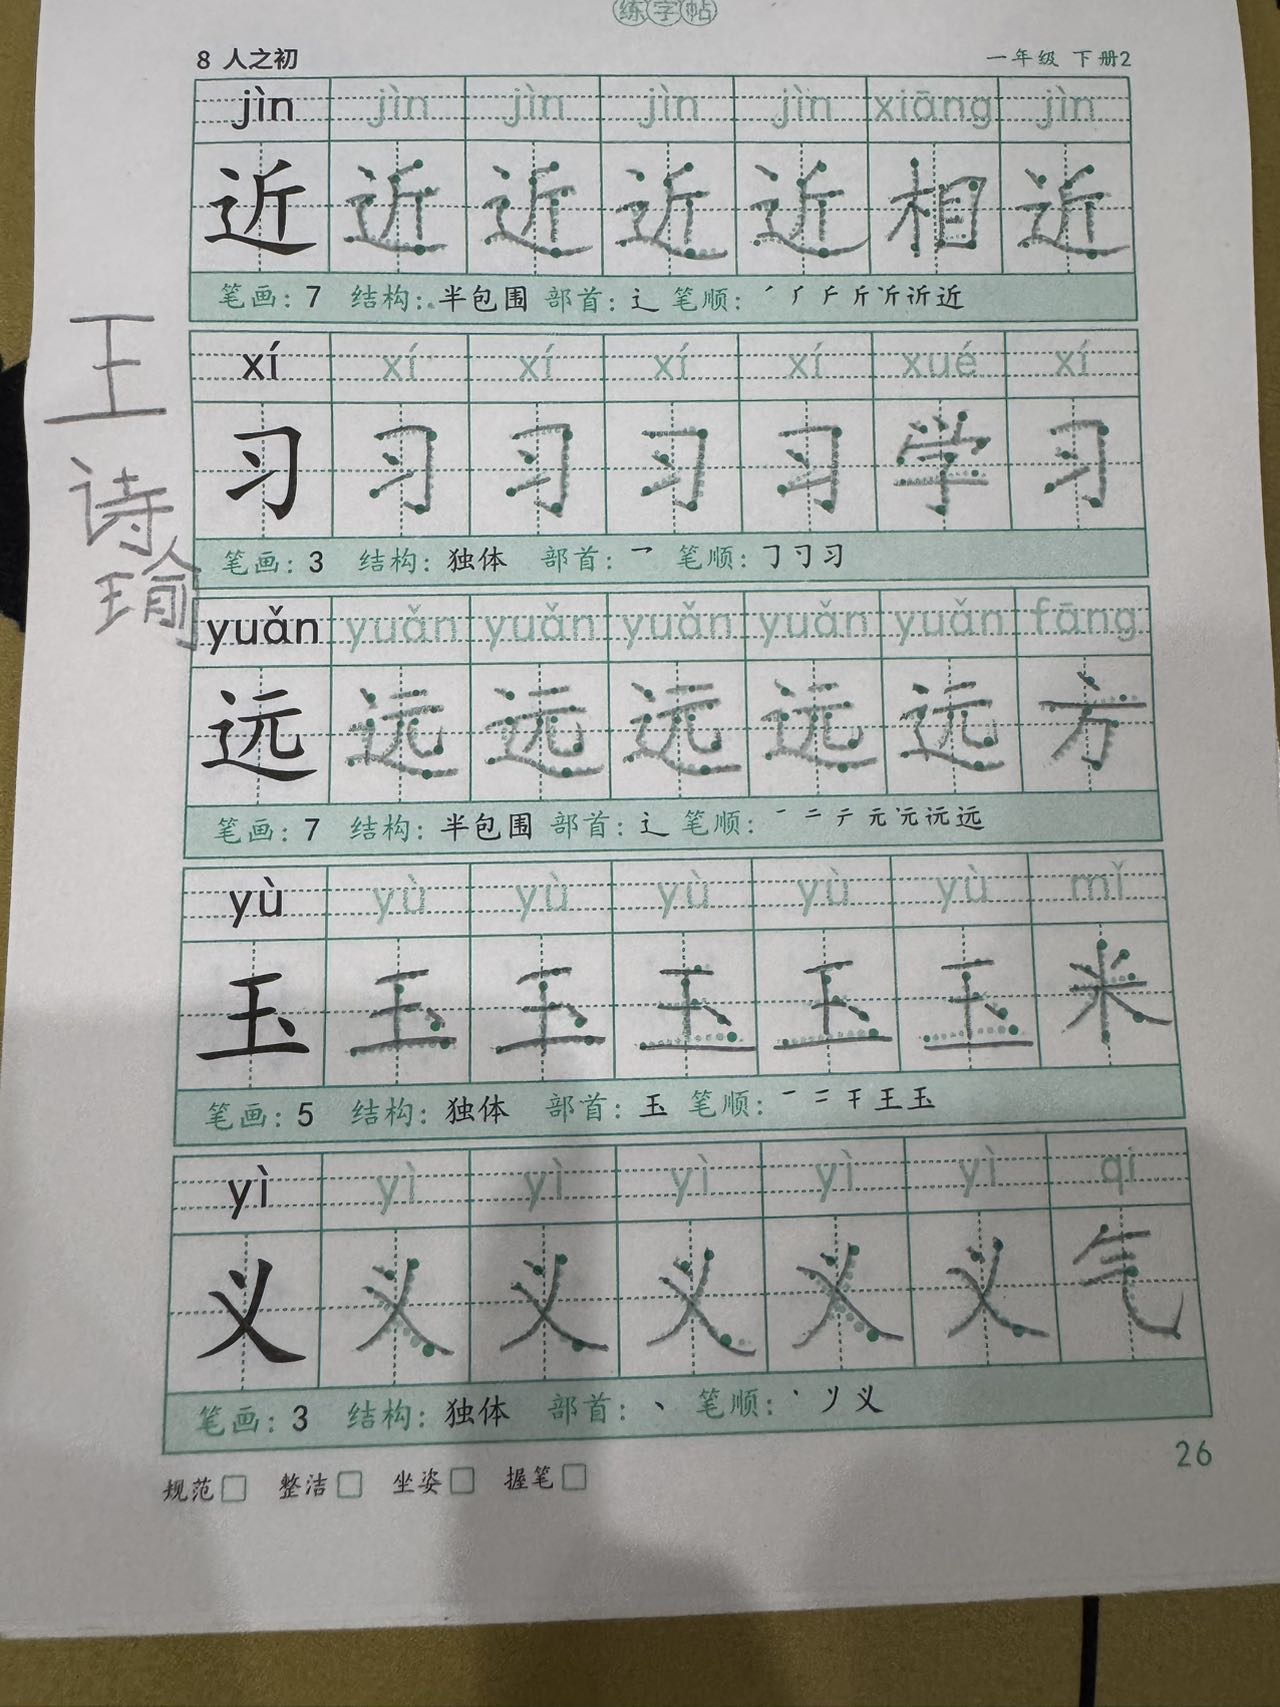 练字帖
8 人之初 一年级 下册2
jìn jìn jìn jìn jìn xiāng jìn
近 近 近 近 近 相 近
笔画：7 结构：半包围 部首：辶 笔顺：
xí xí xí xí xí xué xí
习 习 习 习 习 学 习
笔画：3 结构：独体 部首：㇖ 笔顺：㇆ 刁 习
yuǎn yuǎn yuǎn yuǎn yuǎn yuǎn fāng
远 远 远 远 远 远 方
笔画：7 结构：半包围 部首：辶 笔顺：
yù yù yù yù yù yù mǐ
玉 玉 玉 玉 玉 玉 米
笔画：5 结构：独体 部首：玉 笔顺：一 二 干 王 玉
yì yì yì yì yì yì qì
义 义 义 义 义 义 气
笔画：3 结构：独体 部首：丶 笔顺：
26
规范□ 整洁□ 坐姿□ 握笔□
王
诗
瑜